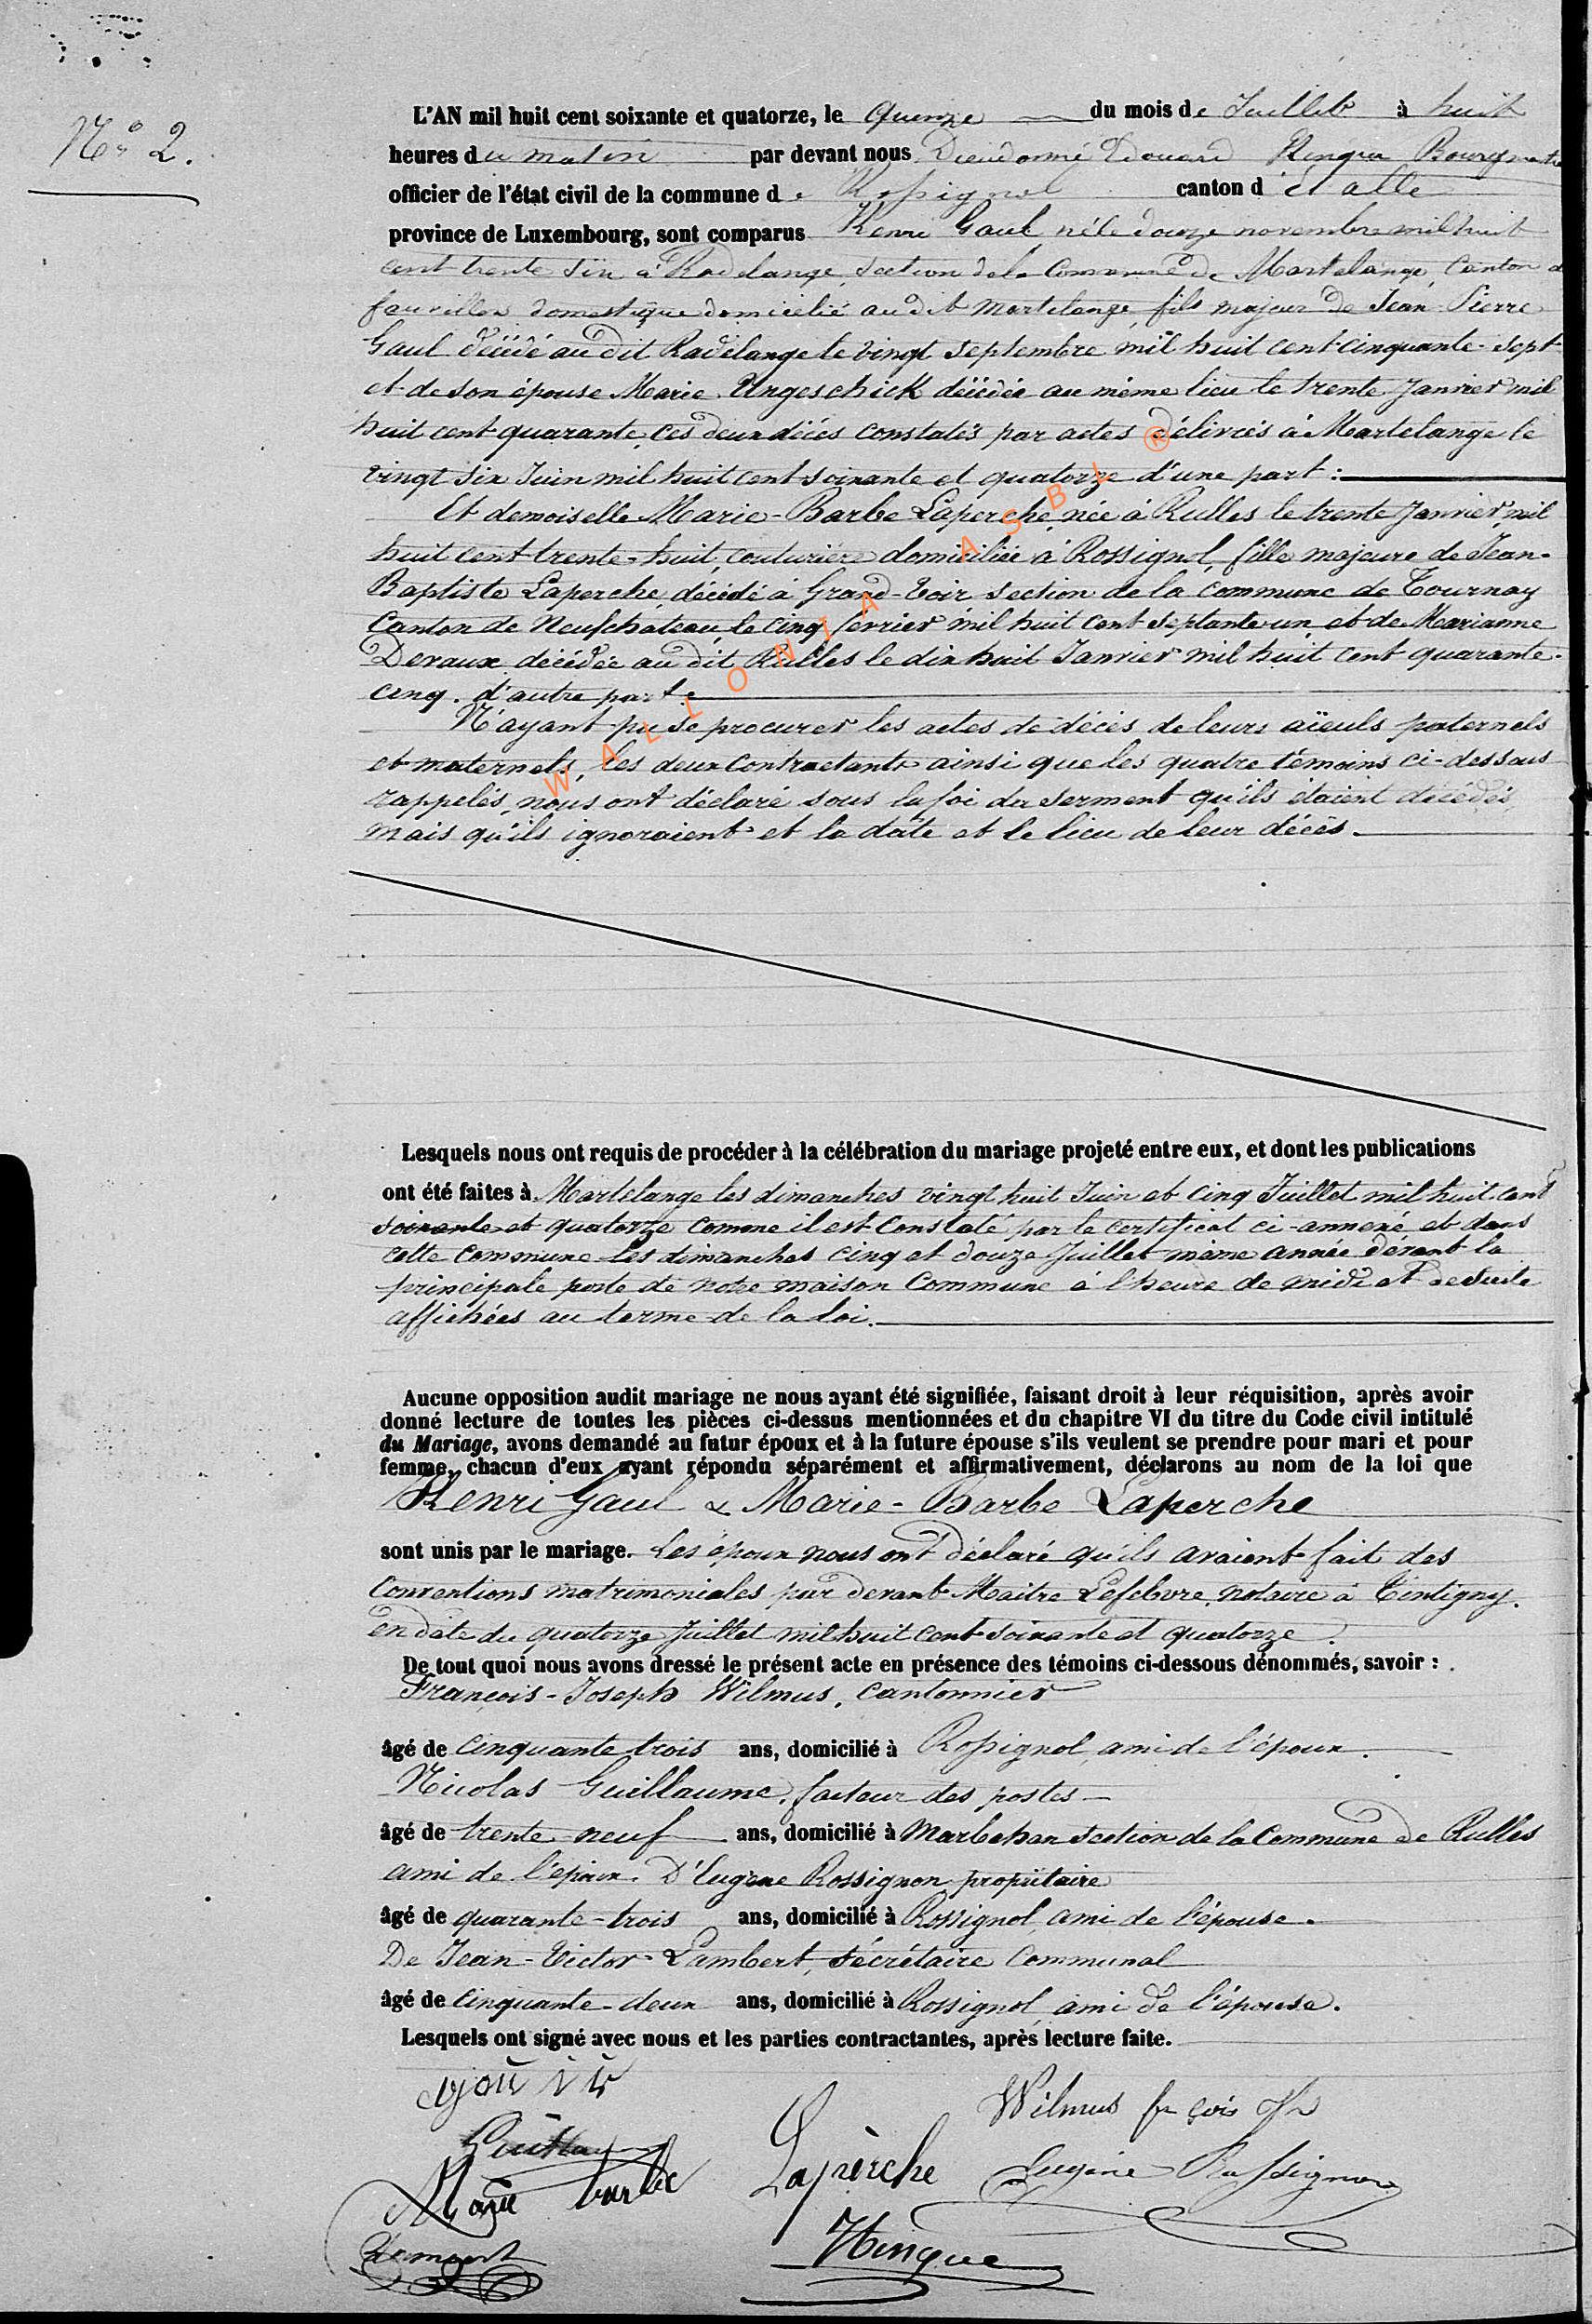 N° 2.
L'AN mil huit cent soixante et quatorze, le Quinze du mois de Juillet à huit
heures du matin par devant nous Dieudonné Edouard Hinque Bourgmestre
officier de l'état civil de la commune de Rossignol canton d'Etalle
province de Luxembourg, sont comparus Henri Gaul, né le douze novembre mil huit
cent trente six à Radelange, section de la Commune de Martelange, Canton de
fauvillers domestique domicilié au dit martelange, fils majeur de Jean-Pierre
Gaul décédé au dit Radelange le vingt septembre mil huit cent cinquante-sept
et de son épouse Marie Ungeschick décédée au même lieu le trente Janvier mil
huit cent quarante, ces deux décés constatés par actes délivrés à Martelange le
vingt six Juin mil huit cent soixante et quatorze d'une part :
Et demoiselle Marie-Barbe Laperche, née à Rulles le trente Janvier mil
huit cent trente-huit, couturière domiciliée à Rossignol, fille majeure de Jean-
Baptiste Laperche, décédé à Grand-Voir section de la commune de Tournay
Canton de Neufchateau, le cinq fevrier mil huit cent septante un, et de Marianne
Devaux décédée au dit Rulles le dix huit Janvier mil huit cent quarante-
cinq. d'autre part :
N'ayant pu se procurer les actes de décès de leurs aïeuls paternels
et maternels, les deux Contractants ainsi que les quatre témoins ci-dessous
rappelés, nous ont déclaré sous la foi du serment qu'ils étaient décédés
mais qu'ils ignoraient et la date et le lieu de leur décès.
WALLONIA ASBL ®
Lesquels nous ont requis de procéder à la célébration du mariage projeté entre eux, et dont les publications
ont été faites à Martelange les dimanches vingt huit Juin et Cinq Juillet mil huit cent
soixante et quatorze comme il est Constaté par le certificat ci-annexé et dans
cette Commune les dimanches cinq et douze Juillet même année dévant la
principale porte de notre maison Commune à l'heure de midi et de suite
affichées au terme de la loi.
Aucune opposition audit mariage ne nous ayant été signifiée, faisant droit à leur réquisition, après avoir
donné lecture de toutes les pièces ci-dessus mentionnées et du chapitre VI du titre du Code civil intitulé
du Mariage, avons demandé au futur époux et à la future épouse s'ils veulent se prendre pour mari et pour
femme, chacun d'eux ayant répondu séparément et affirmativement, déclarons au nom de la loi que
Henri Gaul & Marie-Barbe Laperche
sont unis par le mariage. Les époux nous ont déclaré qu'ils avaient fait des
Conventions matrimoniales par devant Maitre Lefebvre, notaire à Tintigny.
en date du quatorze Juillet mil huit cent soixante et quatorze.
De tout quoi nous avons dressé le présent acte en présence des témoins ci-dessous dénommés, savoir :
François-Joseph Wilmus, Cantonnier
âgé de cinquante trois ans, domicilié à Rossignol, ami de l'époux.
Nicolas Guillaume, facteur des postes
âgé de trente neuf ans, domicilié à Marbehan section de la Commune de Rulles
ami de l'époux. D'Eugène Rossignon propriétaire
âgé de quarante-trois ans, domicilié à Rossignol, ami de l'épouse.
De Jean-Victor Lambert, sécrétaire Communal
âgé de cinquante-deux ans, domicilié à Rossignol, ami de l'épouse.
Lesquels ont signé avec nous et les parties contractantes, après lecture faite.
Wilmus fr çois
Marie barbe Lapèrche Eugène Rossignon
Hinque